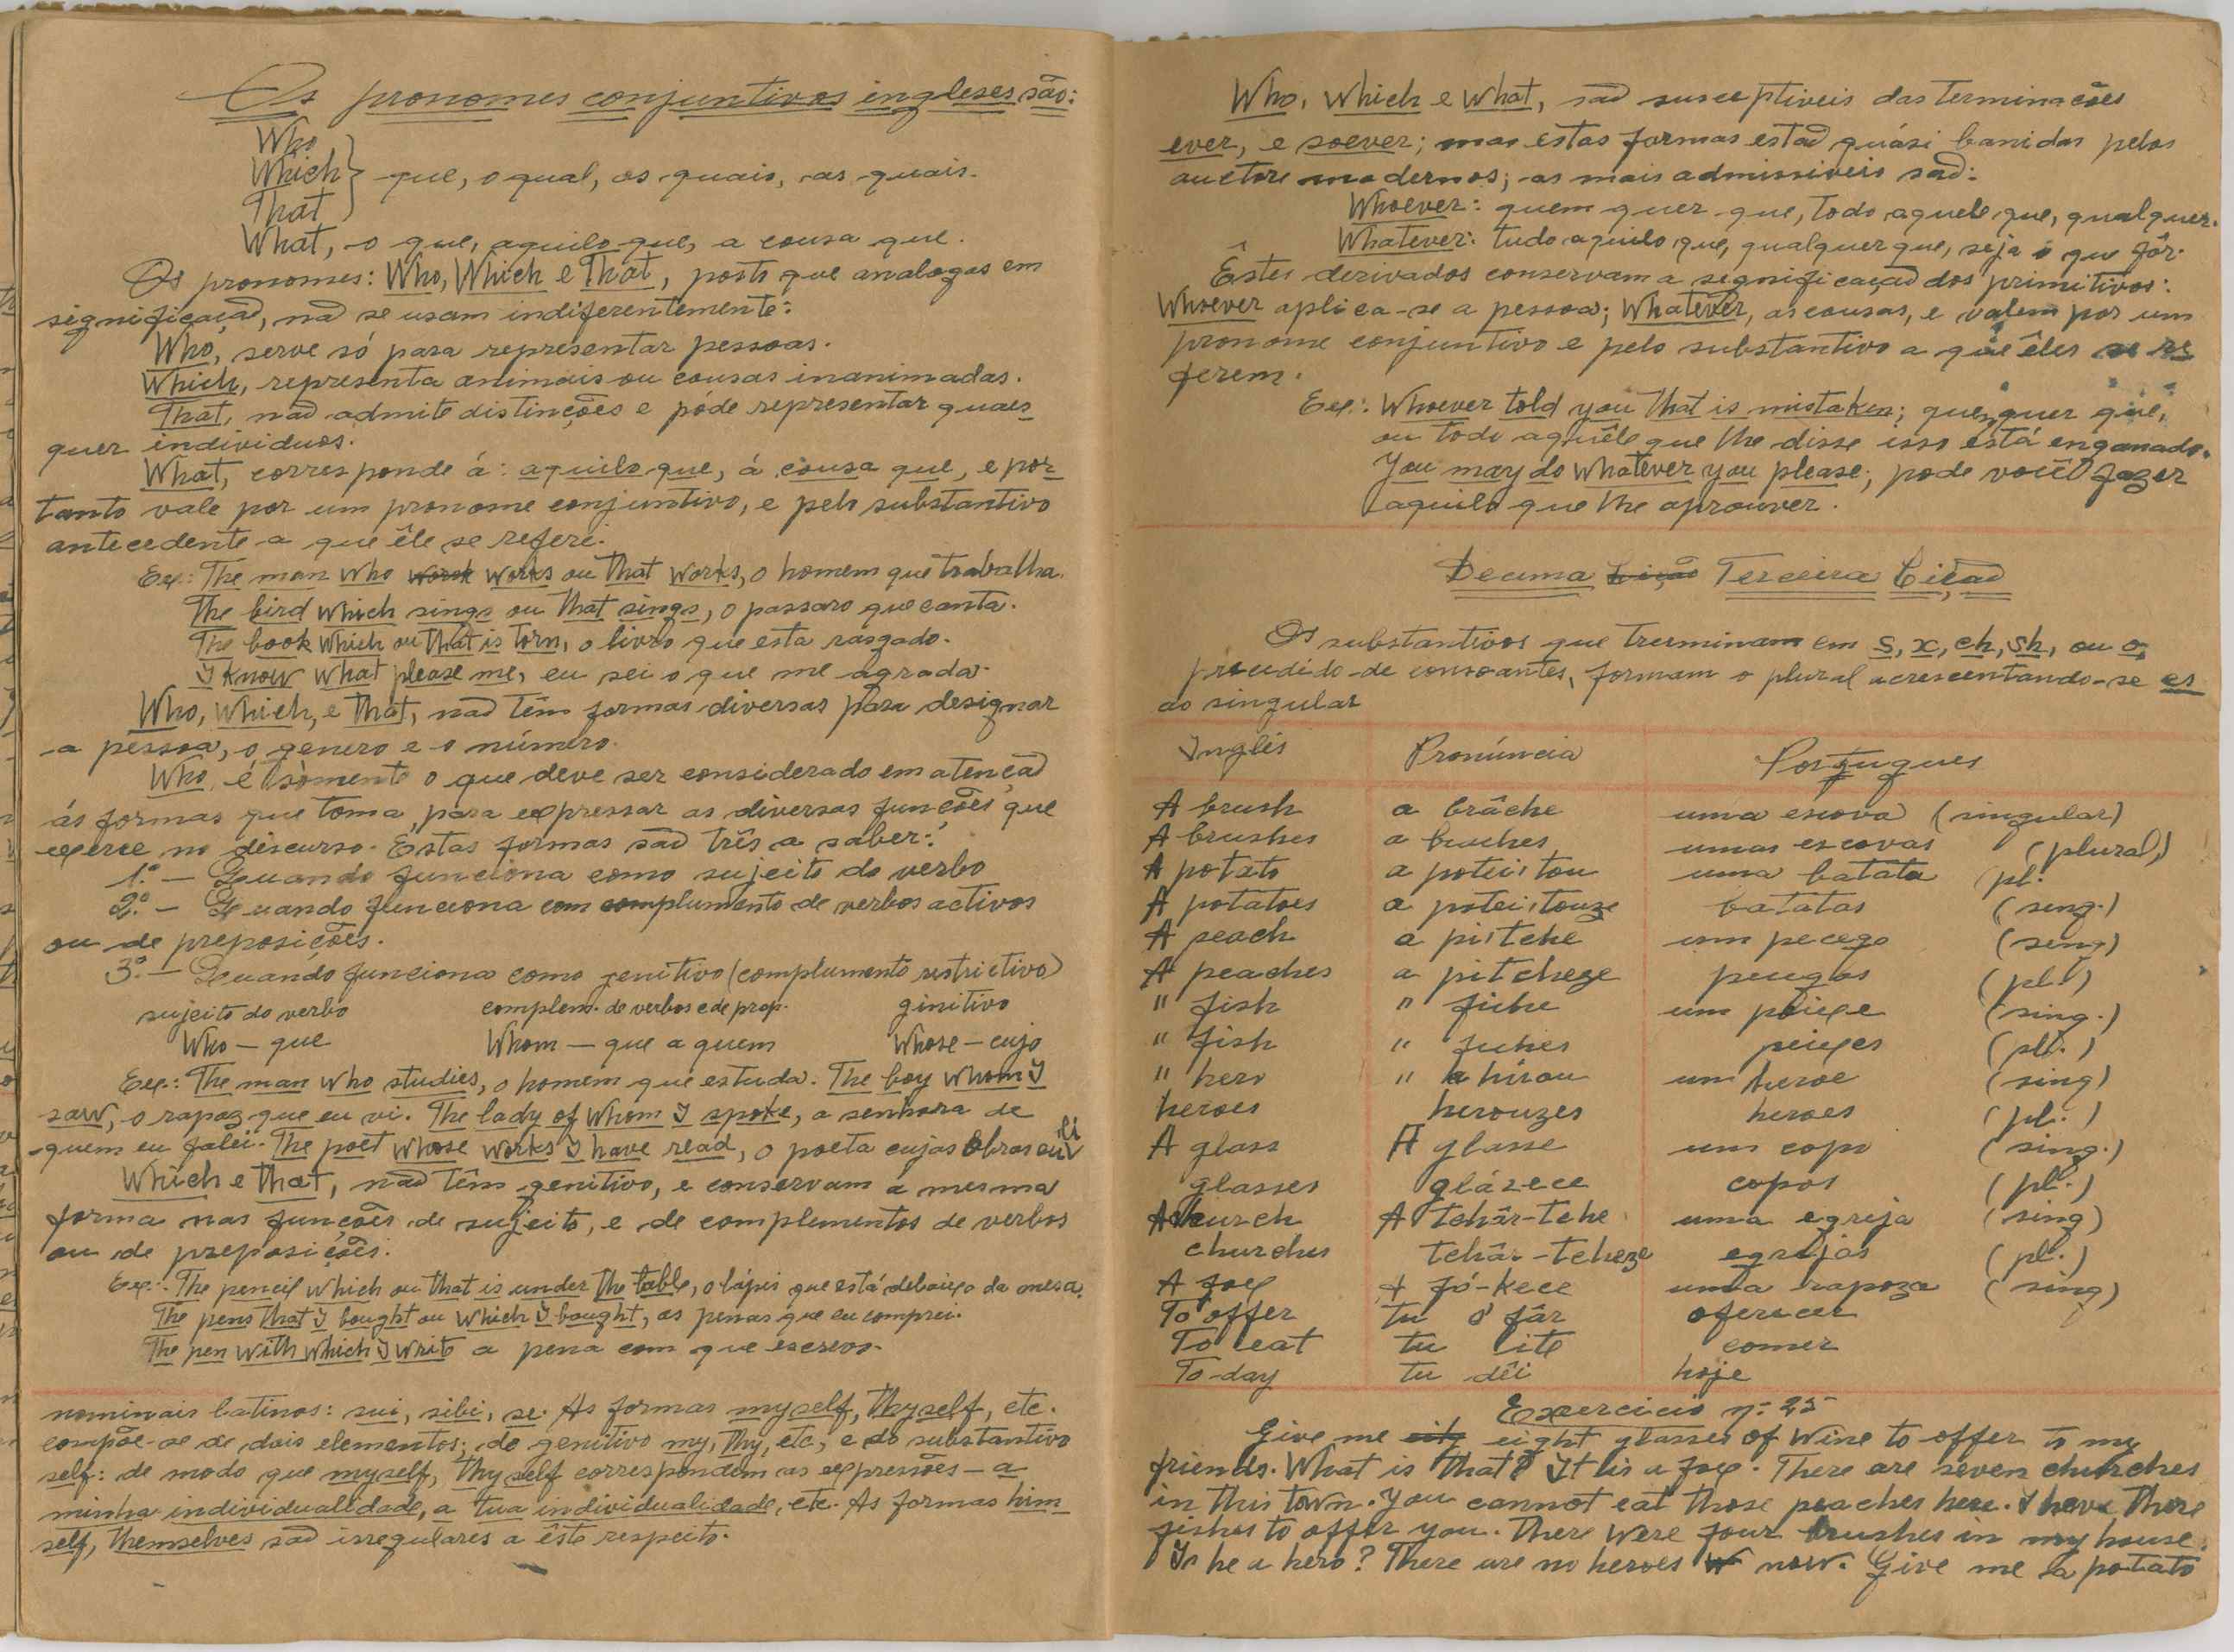 Os pronomes conjuntivos ingleses são:
Who
Which } que, o qual, os quais, as quais.
That
What, o que, aquilo que, a cousa que.
Os pronomes: Who, Which e That, posto que analogas em
significação, não se usam indiferentemente:
Who, serve só para representar pessoas.
Which, representa animais ou cousas inanimadas.
That, não admite distincções e póde representar quaes
quer individuos.
What, corresponde á: aquilo que, á cousa que, e por
tanto vale por um pronome conjuntivo, e pelo substantivo
antecedente a que êle se refere.
Ex.: The man who work works ou that works, o homem que trabalha.
The bird which sings ou that sings, o passaro que canta.
The book which ou that is torn, o livro que esta rasgado.
I know what please me, eu sei o que me agrada.
Who, which, e that, não têm formas diversas para designar
a pessoa, o genero e o número.
Who, é sómente o que deve ser considerado em atenção
ás formas que toma, para expressar as diversas funcções que
exerce no discurso. Estas formas são três a saber:
1.º — Quando funciona como sujeito do verbo
2.º — Quando funciona com complumento de verbos activos
ou de preposições.
3.º — Quando funciona como genitivo (complumento restrictivo)
sujeito do verbo complem. de verbos e de prep. ginitivo
Who — que Whom — que a quem Whose — cujo
Ex.: The man who studies, o homem que estuda. The boy whom I
saw, o rapaz que eu vi. The lady of whom I spoke, a senhora de
quem eu falei. The poet whose works I have read, o poeta cujas obras eu li
Which e that, não têm genitivo, e conservam a mesma
forma nas funções de sujeito, e de complementos de verbos
ou de preposições.
Ex.: The pencil which ou that is under the table, o lápis que está debaixo da mesa.
The pens that I bought ou which I bought, as penas que eu comprei.
The pen with which I write a pena com que escrevo.
nominais latinos: sui, sibi, se. As formas myself, thyself, etc.
compõe-se de dois elementos; do genitivo my, thy, etc, e do substantivo
self: de modo que myself, thyself correspondem as expressões — a
minha individualidade, a tua individualidade, etc. As formas him-
self, themselves são irregulares a êste respeito.
Who, which e what, são susceptiveis das terminações
ever, e soever; mas estas formas estão quási banidas pelos
auctore modernos; as mais admissiveis são:
Whoever: quem quer que, todo aquele que, qualquer.
Whatever: tudo aquilo que, qualquer que, seja o que fôr.
Êstes derivados conservam a significação dos primitivos:
Whoever aplica-se a pessoa; Whatever, as cousas, e valem por um
pronome conjuntivo e pelo substantivo a que êles se re
ferem.
Ex.: Whoever told you that is mistaken; quem quer que,
ou todo aquêle que lhe disse isso está enganado.
You may do whatever you please; pode você fazer
aquilo que lhe aprouver.
Decima Lição Terceira Lição
Os substantivos que trerminam em s, x, ch, sh, ou o,
precedido de consoantes, formam o plural acrescentando-se es
ao singular
Inglês Pronúncia Portugues
A brush a brâche uma escova (singular)
A brushes a bruches umas escovas (plural)
A potato a poteitou uma batata pl.
A potatoes a poteitouze batatas (sing.)
A peach a pitche um pecego (sing)
A peaches a pitcheze pecegos (pl.)
" fish " fiche um peixe (sing.)
" fish " fiches peixes (pl.)
" hero " hirou um heroe (sing)
heroes herouzes heroes (pl.)
A glass A glasse um copo (sing.)
glasses glázece copos (pl.)
A church A tchâr-tche uma egreja (sing)
churches tchâr-tcheze egrejas (pl.)
A fox A fó-kece uma rapoza (sing)
To offer tu ó fâr oferecer
To eat tu ite comer
To-day tu dêi hoje
Exercicio nº 25
Give me eight glasses of wine to offer to my
friends. What is that? It is a fox. There are seven churches
in this town. You cannot eat those peaches here. I have there
fishes to offer you. There were four brushes in my house.
Is he a hero? There are no heroes w now. Give me a potato